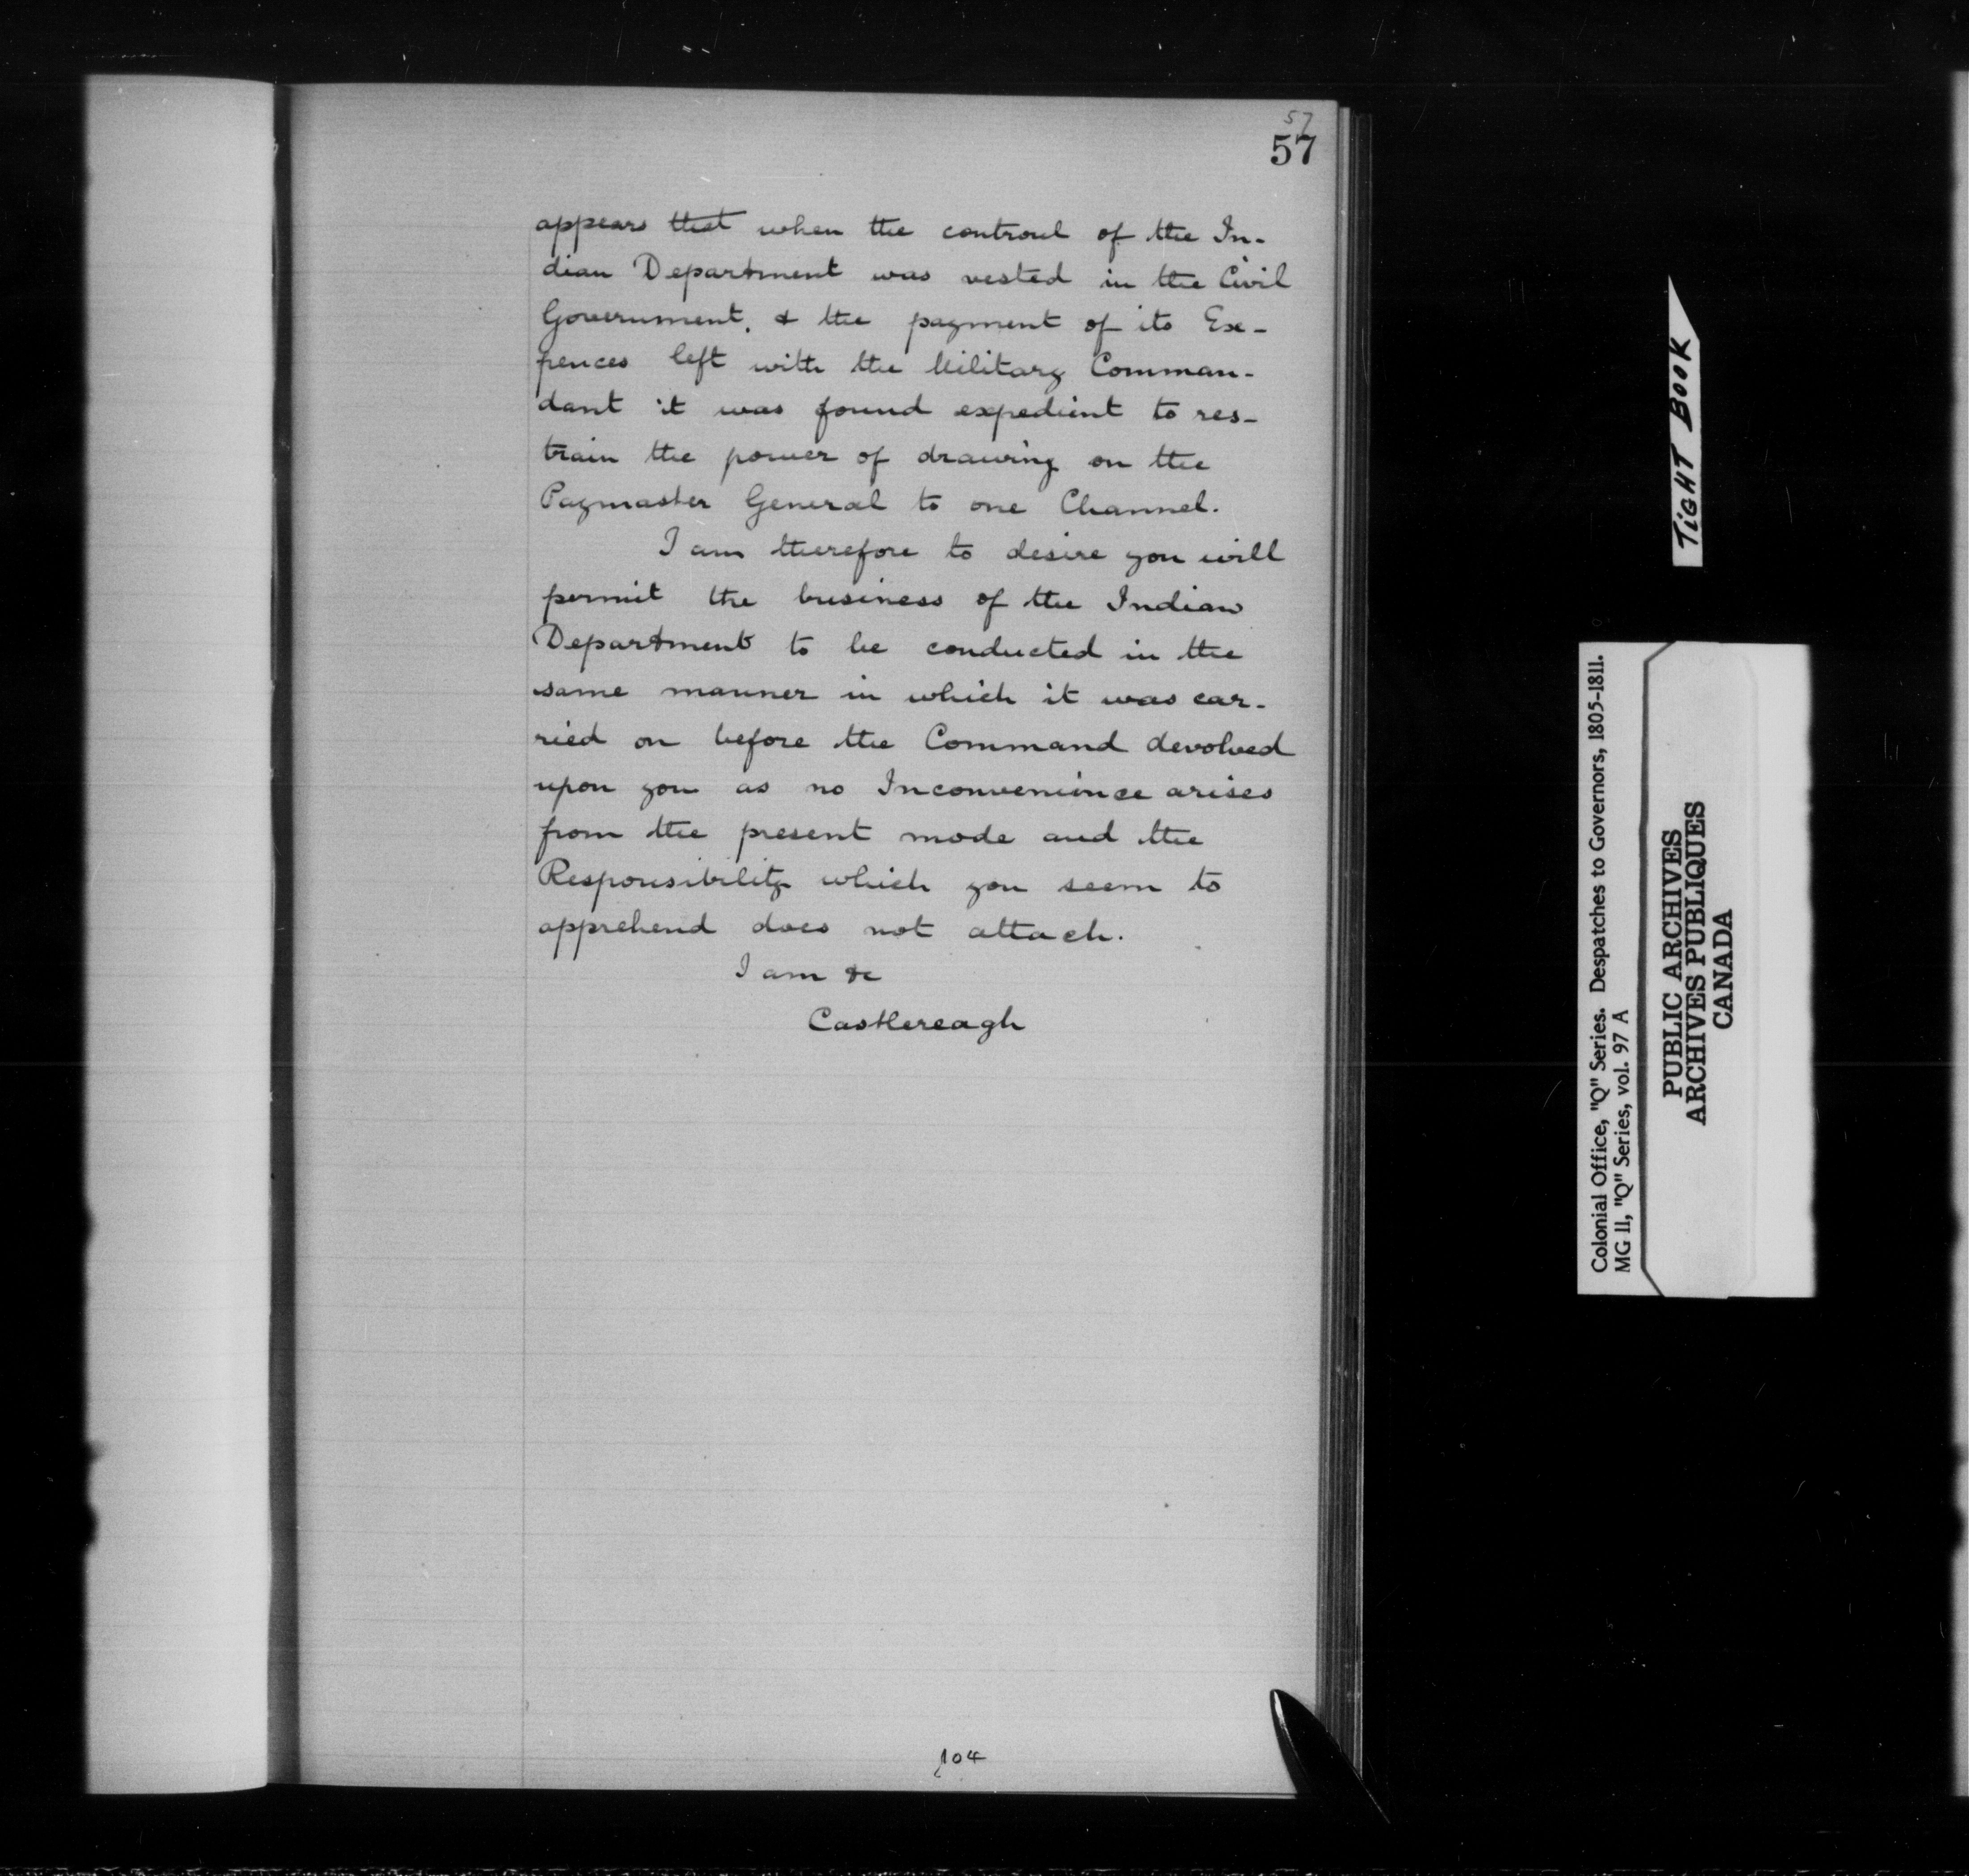 57
57
appears that when the controul of the In-
dian Department was vested in the Civil
Government, & the payment of its Ex-
pences left with the Military Comman-
dant it was found expedient to res-
train the power of drawing on the
Paymaster General to one Channel.
I am therefore to desire you will
permit the business of the Indian
Department to be conducted in the
same manner in which it was car-
ried on before the Command devolved
upon you as no Inconvenience arises
from the present mode and the
Responsibility which you seem to
apprehend does not attach.
I am &c
Castlereagh
104
TIGHT BOOK
Colonial Office, "Q" Series. Despatches to Governors, 1805-1811.
MG 11, "Q" Series, vol. 97 A
PUBLIC ARCHIVES
ARCHIVES PUBLIQUES
CANADA